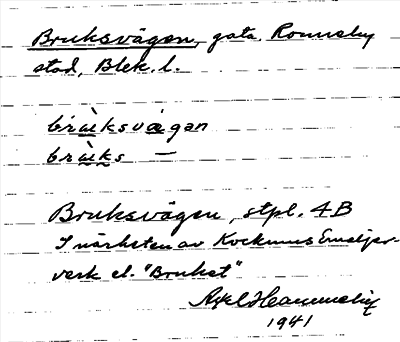 Bruksvägen, gata, Ronneby
stad, Blek. l.
bràu̯ksvægan
bràu̯ks —
Bruksvägen, stpl. 4B
I närheten av Kockums Emaljer-
verk el. "Bruket"
Axel
1941